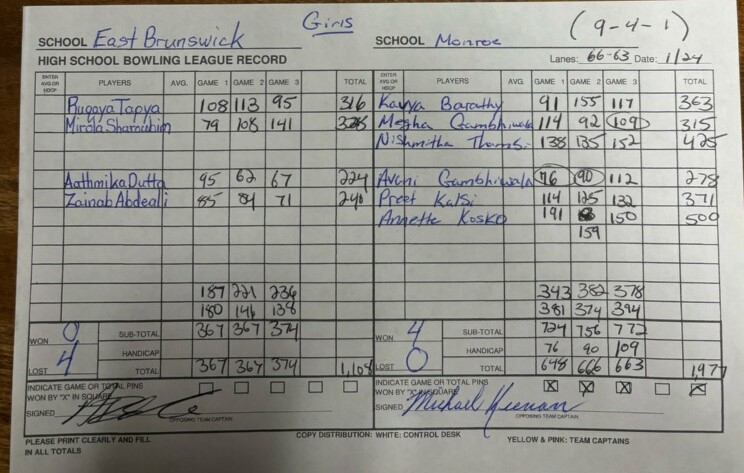 Girls
(9-4-1)
SCHOOL East Brunswick SCHOOL Monroe
HIGH SCHOOL BOWLING LEAGUE RECORD Lanes: 66-63 Date: 1/24
ENTER AVG OR HDCP PLAYERS AVG. GAME 1 GAME 2 GAME 3 TOTAL ENTER AVG OR HDCP PLAYERS AVG. GAME 1 GAME 2 GAME 3 TOTAL
Tapya 108 113 95 316 Kavya Barathy 91 155 117 363
79 108 141 Megha Gambhiwala 114 92 109 315
Nishmitha 138 135 152 425
Aathmika Dutta 95 62 67 224 Avani Gambhiwala 76 90 112 278
Zainab Abdeali 85 84 71 240 Preet Kalsi 114 125 132 371
Annette Kosko 191 150 500
159
187 221 236 343 382 378
180 146 138 381 374 394
WON 0 SUB-TOTAL 367 367 374 WON 4 SUB-TOTAL 724 756 772
HANDICAP HANDICAP 76 90 109
LOST 4 TOTAL 367 367 374 1,108 LOST 0 TOTAL 648 666 663 1,977
INDICATE GAME OR TOTAL PINS WON BY "X" IN SQUARE INDICATE GAME OR TOTAL PINS WON BY "X" IN SQUARE X X X X
SIGNED OPPOSING TEAM CAPTAIN SIGNED Michael Keenan OPPOSING TEAM CAPTAIN
PLEASE PRINT CLEARLY AND FILL IN ALL TOTALS COPY DISTRIBUTION: WHITE: CONTROL DESK YELLOW & PINK: TEAM CAPTAINS